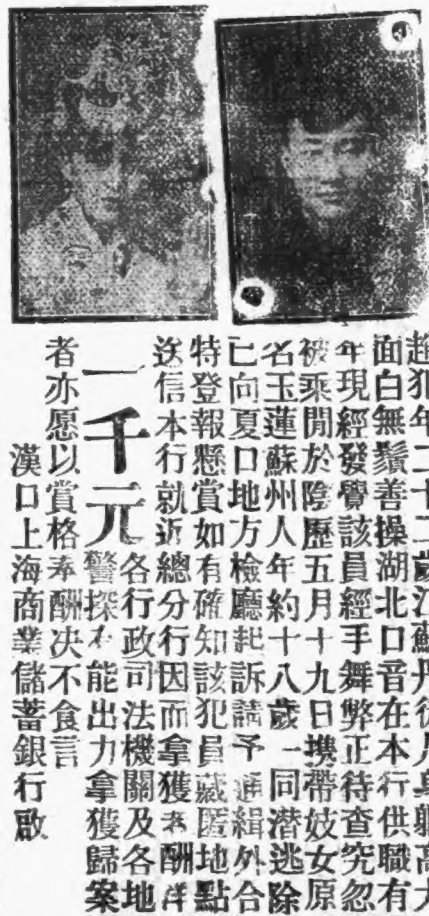 趙犯年二十二歲江蘇丹徒人身軀高大
面白無鬚善操湖北口音在本行供職有
年現經發覺該員經手舞弊正待查究忽
被乘閒於陰歷五月十九日携帶妓女原
名玉蓮蘇州人年約十八歲一同潜逃除
已向夏口地方檢廳起訴請予通緝外合
特登報懸賞如有確知該犯員藏匿地點
送信本行就近總分行因而拿獲奉酬洋
一千元各行政司法機關及各地
警探有能出力拿獲歸案
者亦愿以賞格奉酬决不食言
漢口上海商業儲蓄銀行啟